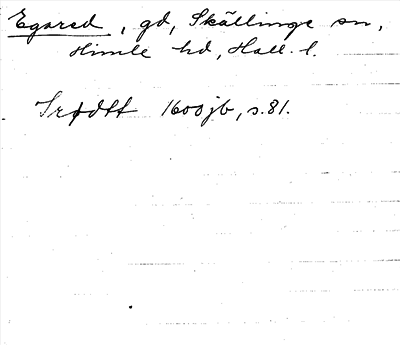 Egared, gd, Skällinge sn,
Himle hd, Hall. l.
Trødtt 1600jb, s. 81.